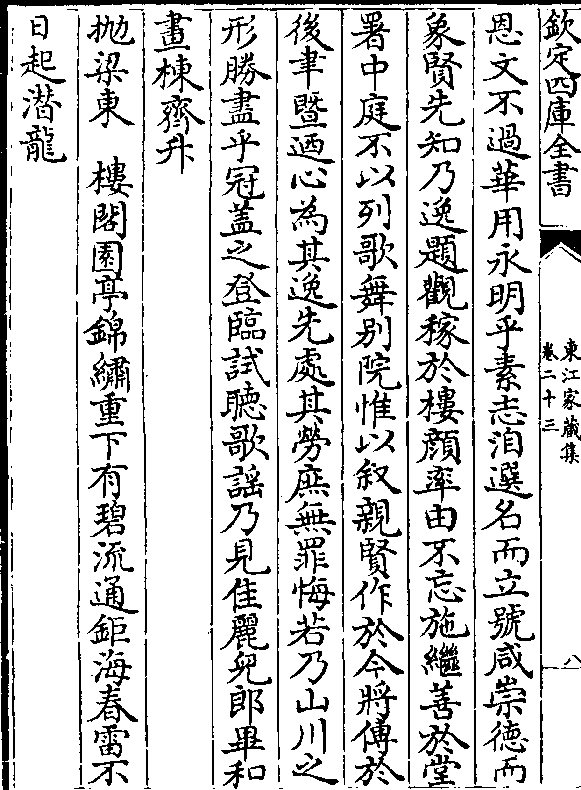 欽定四庫全書
東江家藏集
卷二十三
八
恩文不過華用永明乎素志洎選名而立號咸崇德而
象賢先知乃逸題觀稼於樓顔率由不忘施繼善於堂
署中庭不以列歌舞别院惟以叙親賢作於今將傳於
後聿暨迺心為其逸先處其勞庶無罪悔若乃山川之
形勝盡乎冠蓋之登臨試聽歌謡乃見佳麗兒郎畢和
畫棟齊升
抛梁東　樓閣園亭錦繡重下有碧流通鉅海春雷不
日起潜龍